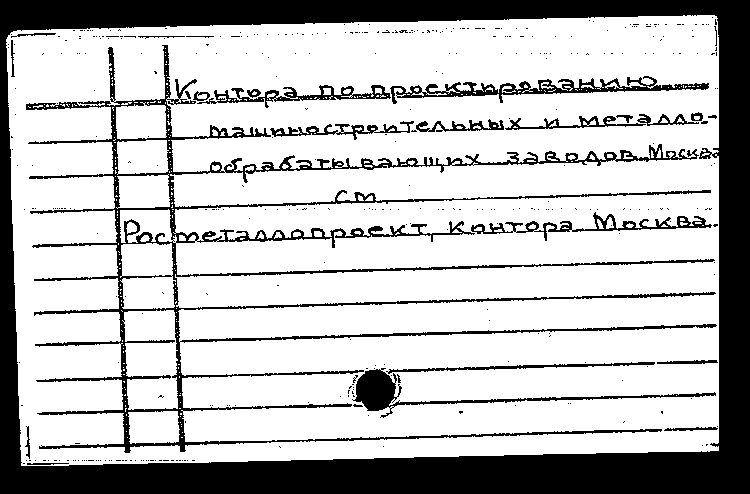 Контора по проектированию
машиностроительных и металло-
обрабатывающих заводов. Москва
см
Росметаллопроект, контора Москва